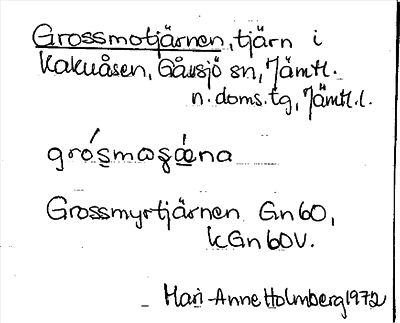 Grossmotjärnen, tjärn i
Kakuåsen, Gåxsjö sn, Jämtl.
n. doms. tg, Jämtl. l.
Grossmyrtjärnen Gn 60,
kGn 60V.
Mari-Anne Holmberg 1972